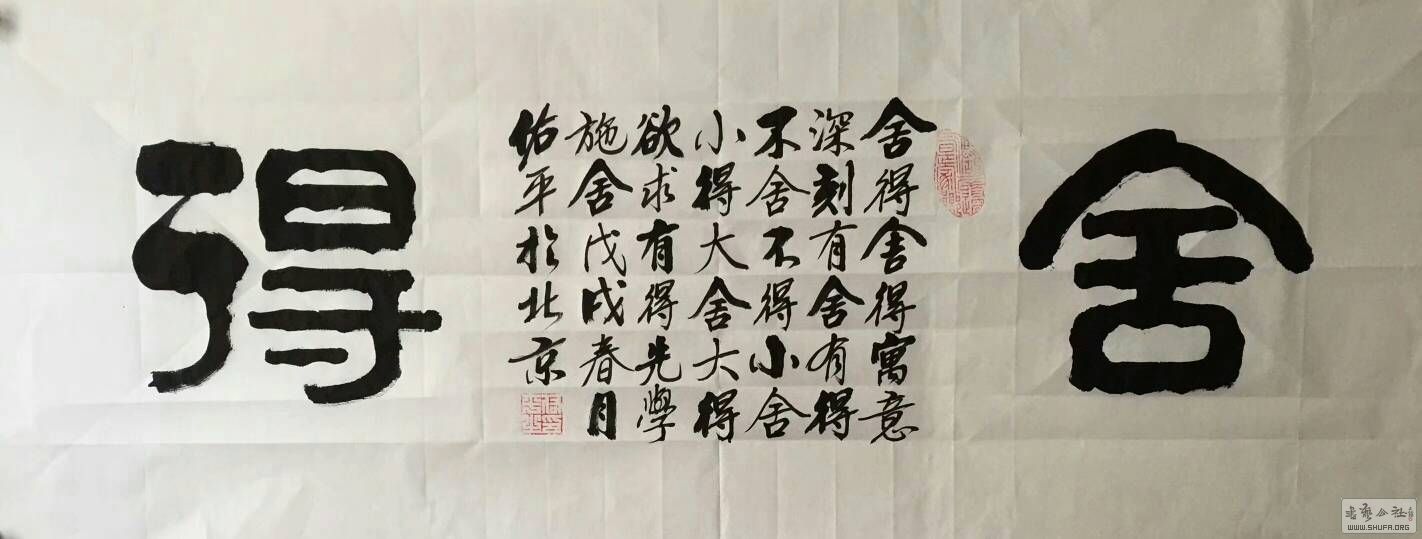 舍
舍得舍得寓意
深刻有舍有得
不舍不得小舍
小得大舍大得
欲求有得先學
施舍戊戌春月
佑平於北京
得
WWW.SHUFA.ORG